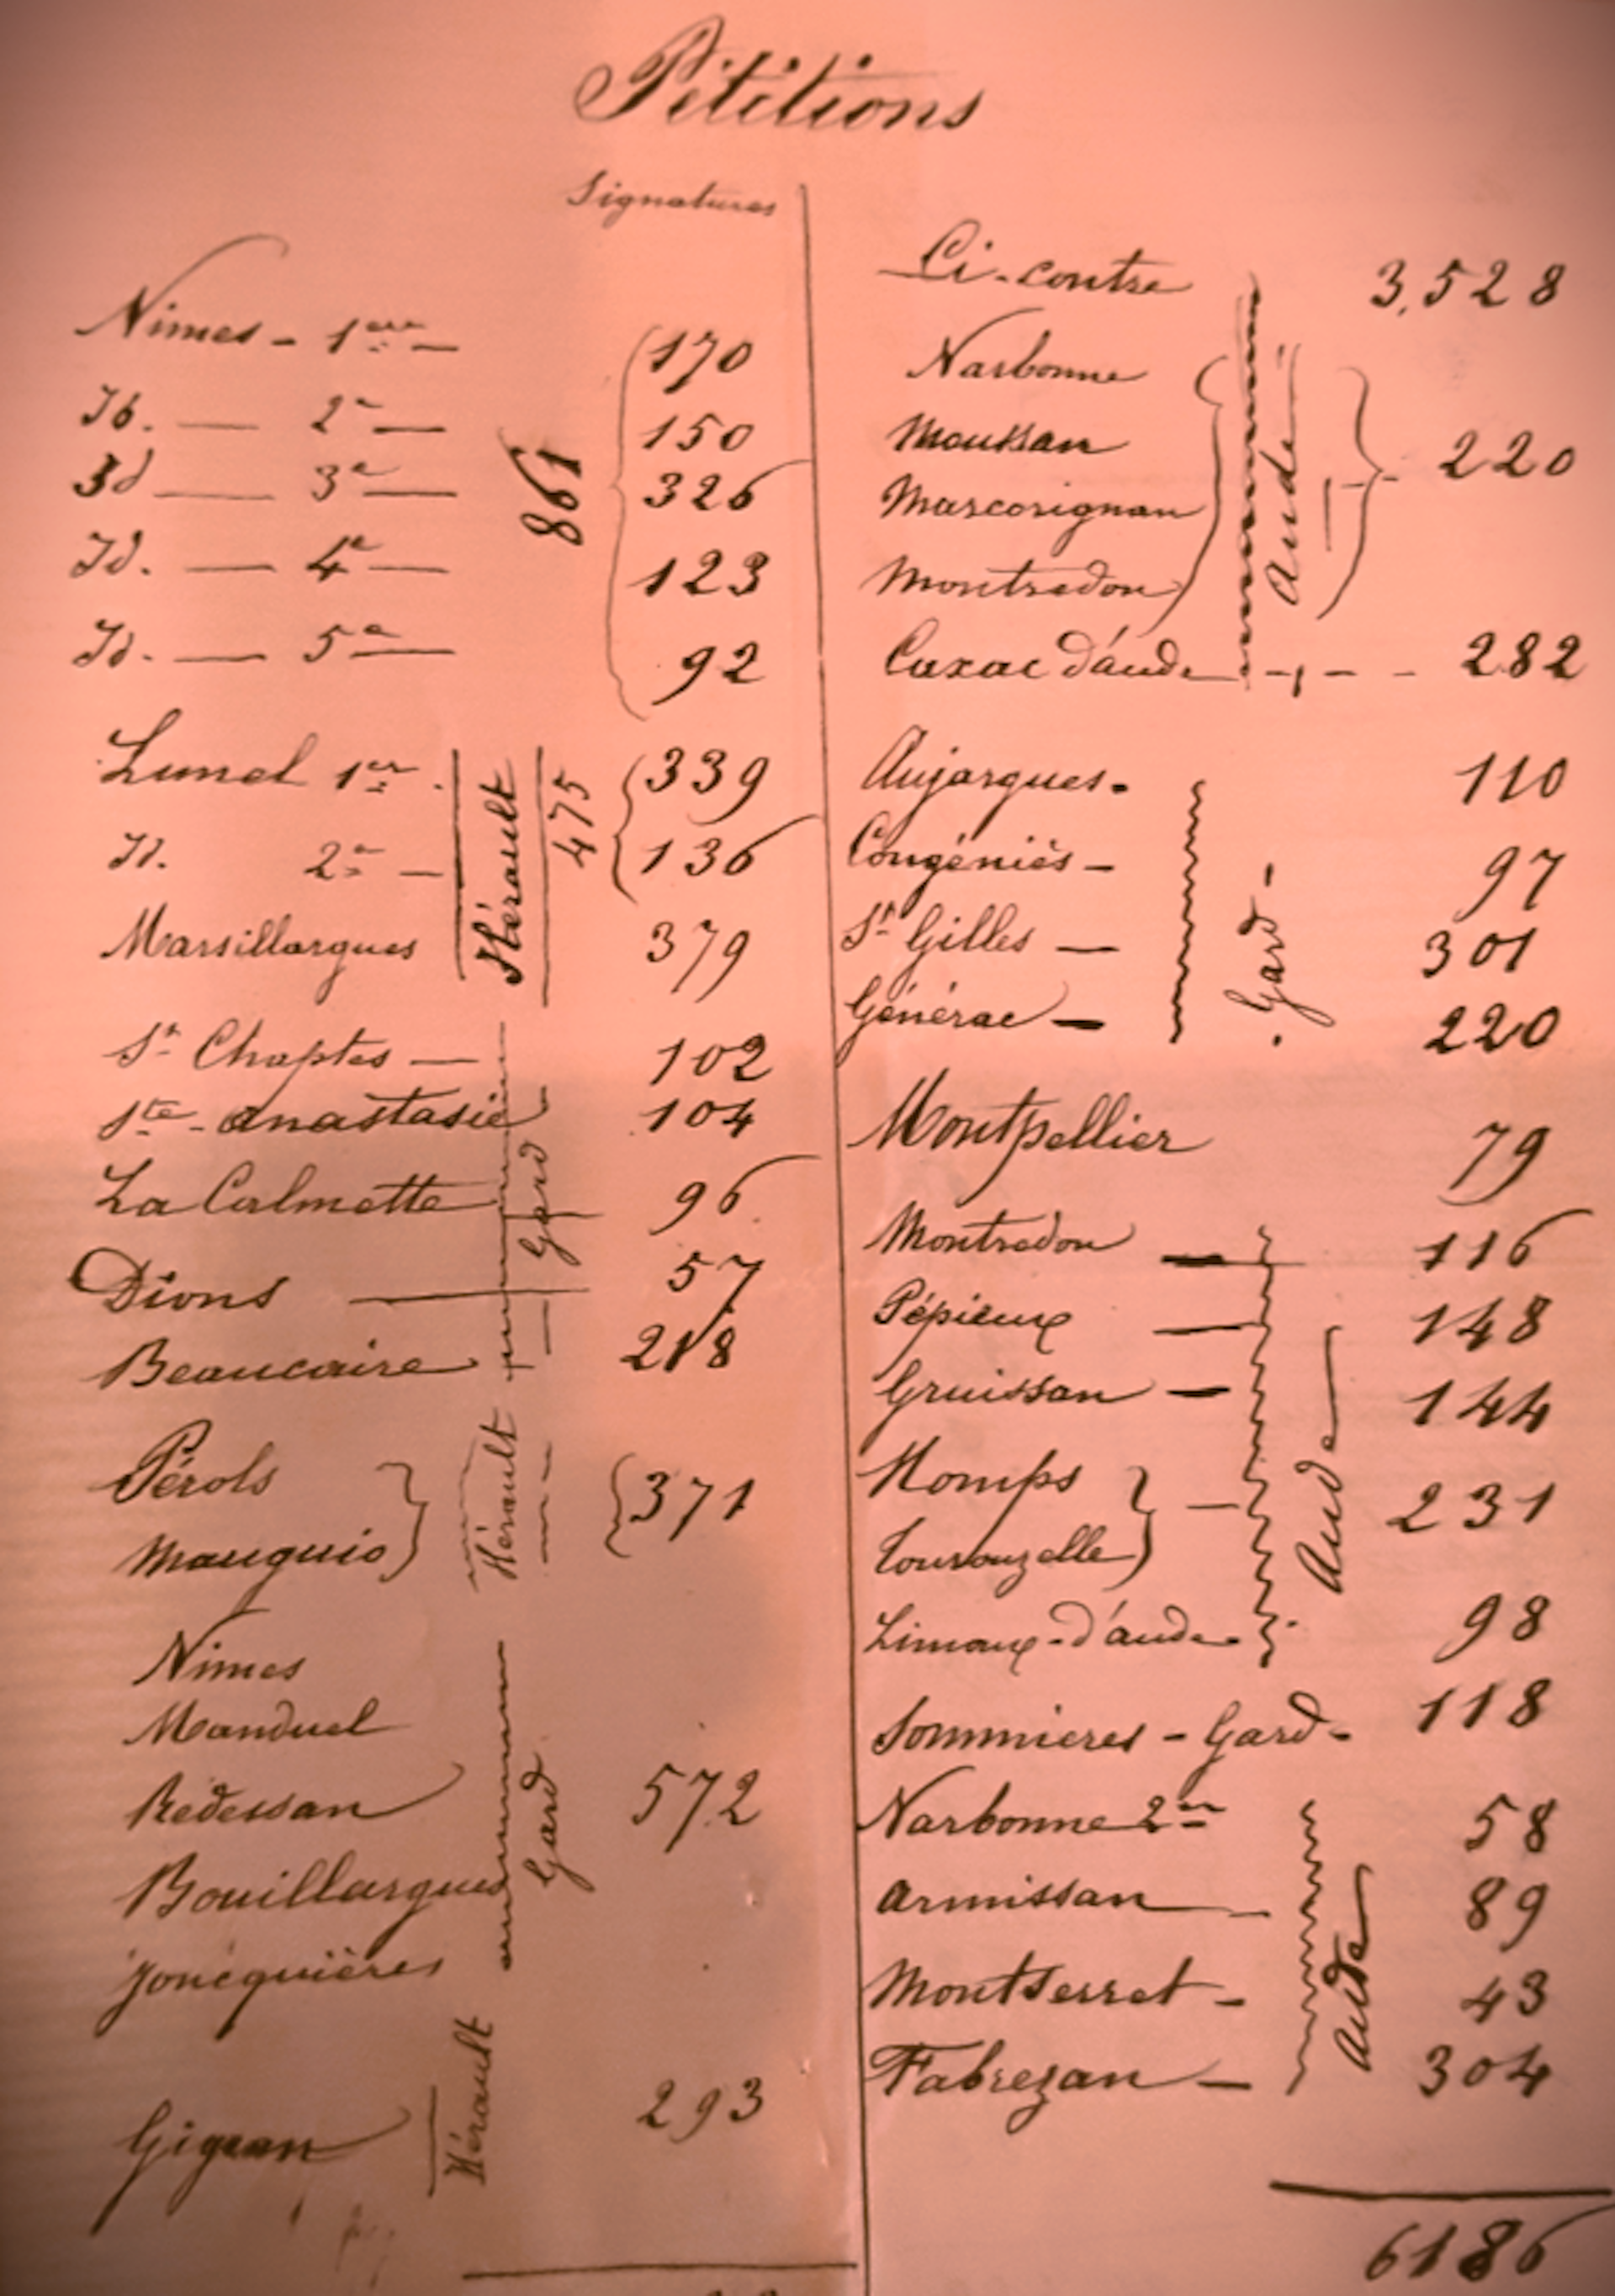 Pétitions
Signatures
Nimes - 1ere — 170
Id. — 2e — 150
Id — 3e — 326
Id. — 4e — 123
Id. — 5e — 92
861
Lunel 1er. 339
Id. 2e — 136
475
Marsillargues 379
Hérault
St Chaptes — 102
Ste - anastasie 104
La Calmette 96
Dions — 57
Beaucaire 218
Gard
Pérols
Mauguio } 371
Hérault
Nimes
Manduel
Redessan 572
Bouillargues
Joncquières
Gard
Gigean 293
Hérault
Ci-contre 3,528
Narbonne
Moussan
Marcorignan
Montredon
Aude
220
Cuxac d'aude - - - 282
Aujargues - 110
Congéniès - 97
St Gilles — 301
Générac — 220
Gard
Montpellier 79
Montredon — 116
Pépieux — 148
Gruissan — 144
Homps
Tourouzelle } — 231
Limoux-d'aude 98
Aude
Sommieres - Gard - 118
Narbonne 2e 58
Armissan — 89
Montserret - 43
Fabrezan — 304
Aude
6186